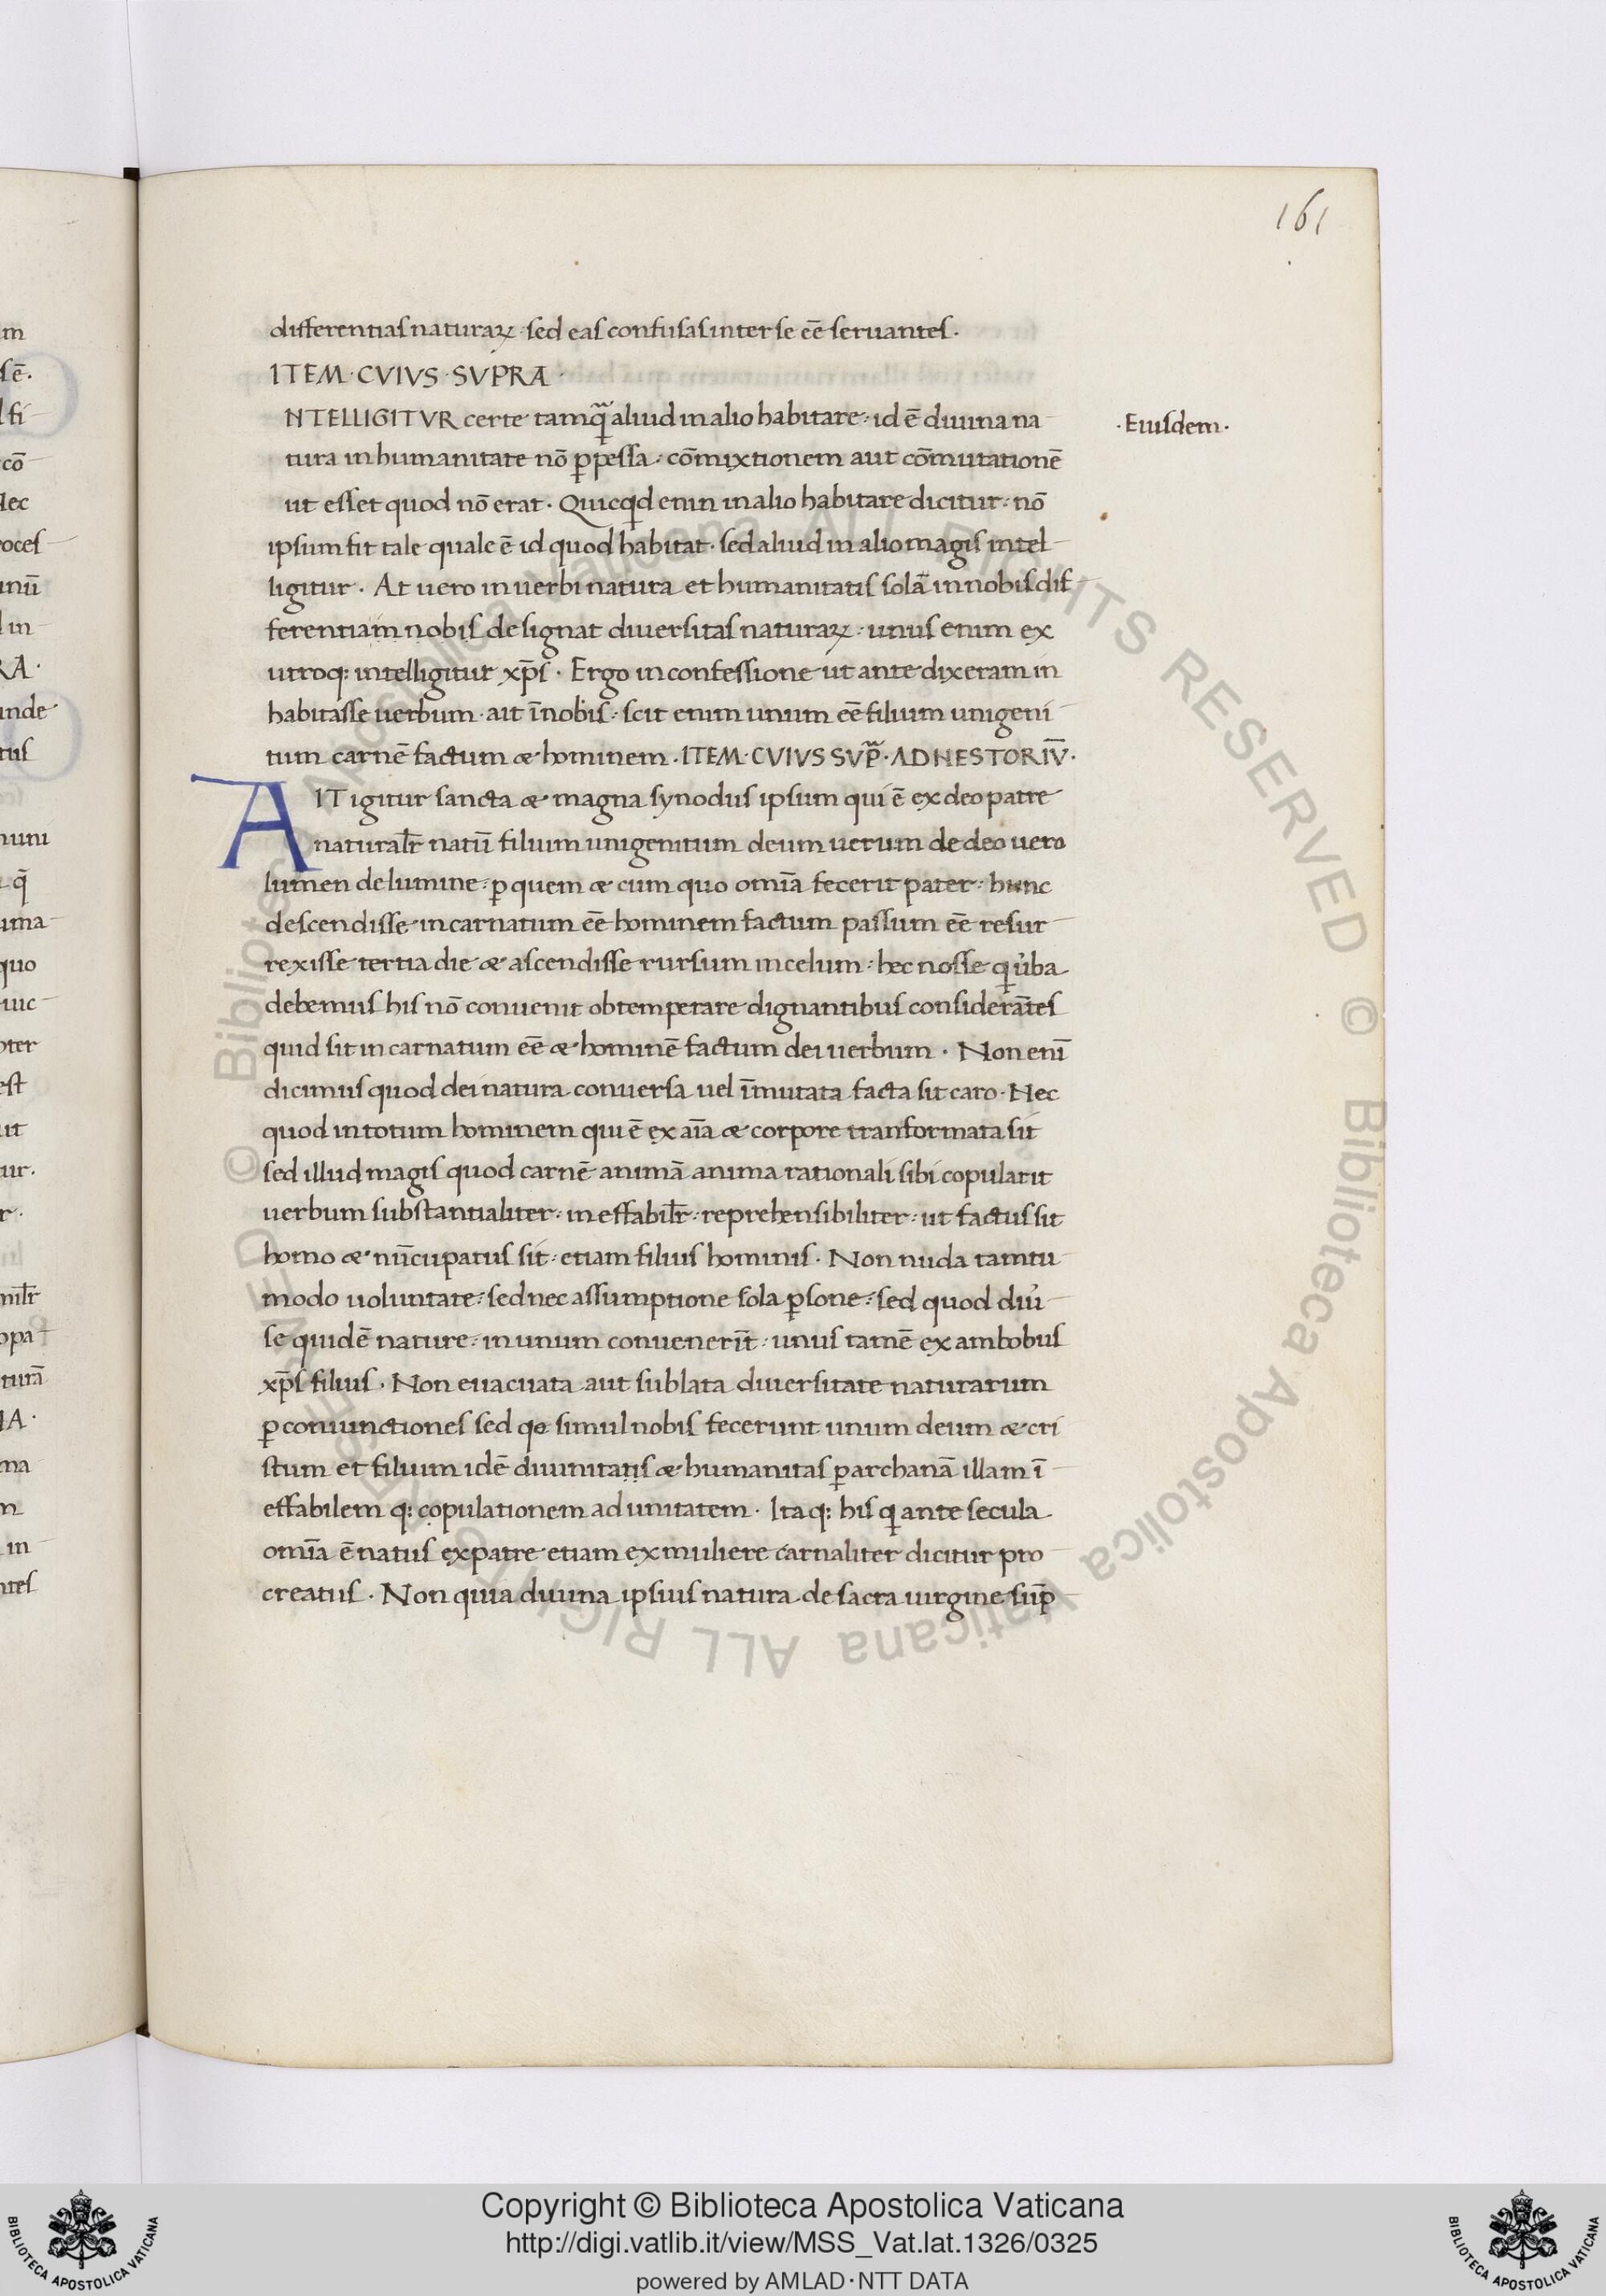 161
differentias naturaꝝ · sed eas confusas inter se eē seruantes ·
ITEM · CVIVS · SVPRA ·
NTELLIGITVR certe tamꝙ̃ aliud in alio habitare · id ē diuina na
· Eiusdem ·
tura in humanitate nō ꝑpessa · cōmixtionem aut cōmutationē
ut esset quod nō erat · Quicqd enin in alio habitare dicitur · nō
ipsum fit tale quale ē id quod habitat · sed aliud in alio magis intel
ligitur · At uero in uerbi natura et humanitatis solā in nobis dif
ferentiam nobis designat diuersitas naturaꝝ · unus enim ex
utroq: intelligitur xp̄s · Ergo in confessione ut ante dixeram in
habitasse uerbum · ait ī nobis · scit enim unum eē filium unigeni
tum carnē factum & hominem · ITEM · CVIVS SVP̃ · AD NESTORIV̄ ·
AIT igitur sancta & magna synodus ipsum qui ē ex deo patre
naturalr̄ natū filium unigenitum deum uerum de deo uero
lumen de lumine · ꝑ quem & cum quo omīa fecerit pater · hunc
descendisse incarnatum eē hominem factum passum eē resur
rexisse tertia die & ascendisse rursum in celum · hec nosse ꝗ u̓ba
debemus his nō conuenit obtemperare dignantibus considerātes
quid sit incarnatum eē & hominē factum dei uerbum · Non enī
dicimus quod dei natura conuersa uel īmutata facta sit caro · Nec
quod in totum hominem qui ē ex aīa & corpore tranformata sit
sed illud magis quod carnē animā anima rationali sibi copularit
uerbum substantialiter · ineffabilr̄ · reprehensibiliter · ut factus sit
homo & nūcupatus sit · etiam filius hominis · Non nuda tamtu
modo uoluntate · sed nec assumptione sola ꝑsone · sed quod diu̓
se quidē nature · in unum conuenerīt · unus tamē ex ambobus
xp̄s filius · Non euacuata aut sublata diuersitate naturarum
ꝑ coniunctiones sed qe simul nobis fecerunt unum deum & cri
stum et filium idē diuinitatis & humanitas ꝑ archanā illam ī
effabilem q: copulationem ad unitatem · Itaq: his ꝗ ante secula
omīa ē natus ex patre etiam ex muliere carnaliter dicitur pro
creatus · Non quia diuina ipsius natura de sacra uirgine sup̄
Copyright © Biblioteca Apostolica Vaticana
http://digi.vatlib.it/view/MSS_Vat.lat.1326/0325
powered by AMLAD·NTT DATA